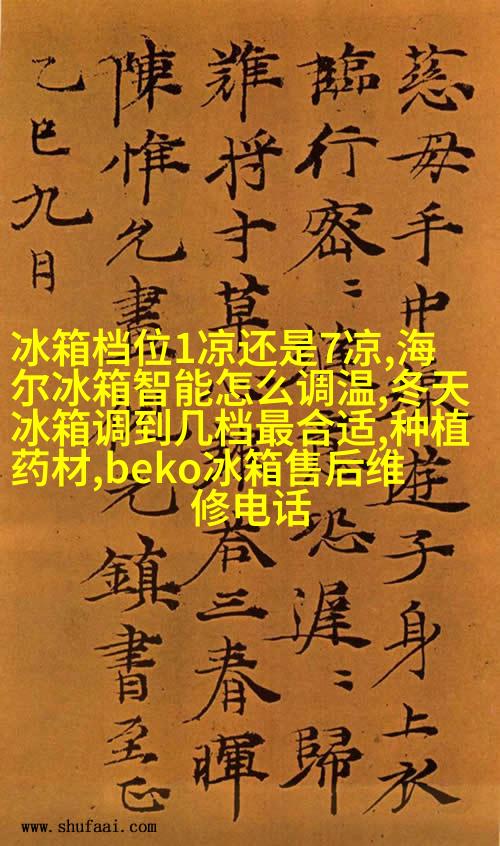 慈母手中線遊子身上衣
臨行密〻恐遲〻歸
難将寸草荅三春暉
陳惟允畫元鎮書至正
乙巳九月
冰箱档位1凉还是7凉,海
尔冰箱智能怎么调温,冬天
冰箱调到几档最合适,种植
药材,beko冰箱售后维
修电话
www.shufaai.com